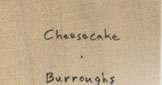 Cheesecake
.
Burroughs